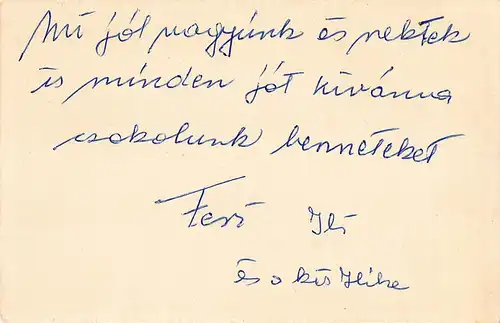 Mi jól vagyunk és nektek
is minden jót kivánva
csokolunk benneteket
Feri Ili
és a kis Ilike